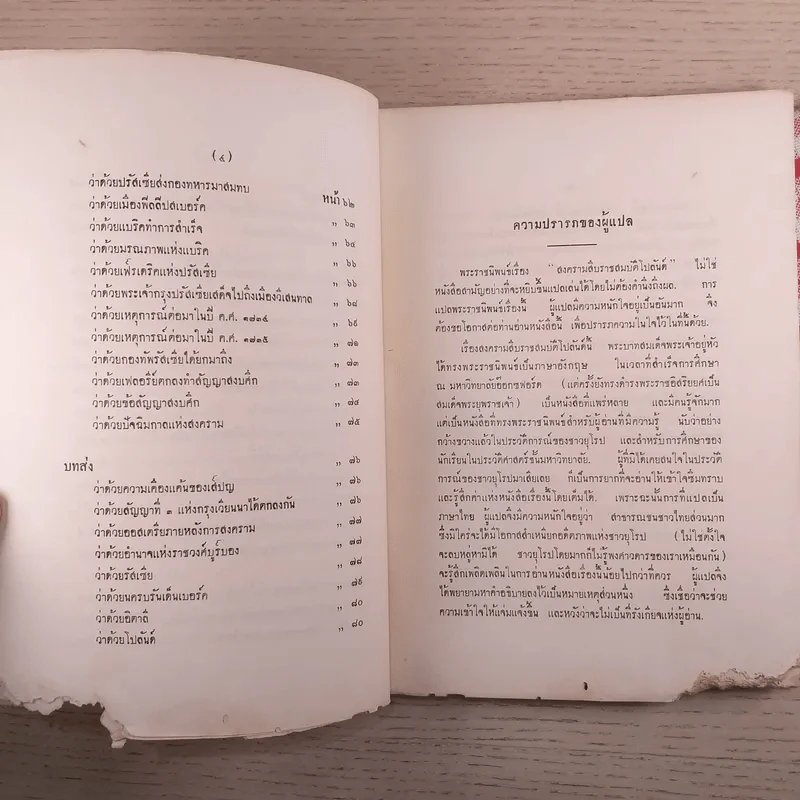 (๔)
ว่าด้วยปรัสเซียส่งกองทหารมาสมทบ หน้า ๖๒
ว่าด้วยเมืองฟิลลิปสเบอร์ค ,, ๖๓
ว่าด้วยแบริคทำการสำเร็จ ,, ๖๔
ว่าด้วยมรณภาพแห่งแบริค ,, ๖๖
ว่าด้วยเฟรเดริคแห่งปรัสเซีย ,, ๖๖
ว่าด้วยพระเจ้ากรุงปรัสเซียเสด็จไปถึงเมืองวิเสนทาล ,, ๖๘
ว่าด้วยเหตุการณ์ต่อมาในปี ค.ศ. ๑๗๓๔ ,, ๖๙
ว่าด้วยเหตุการณ์ต่อมาในปี ค.ศ. ๑๗๓๕ ,, ๗๑
ว่าด้วยกองทัพรัสเซียได้ยกมาถึง ,, ๗๓
ว่าด้วยเฟลอรีย์ตกลงทำสัญญาสงบศึก ,, ๗๓
ว่าด้วยข้อสัญญาสงบศึก ,, ๗๔
ว่าด้วยปัจฉิมกาลแห่งสงคราม ,, ๗๕
บทส่ง ,, ๗๖
ว่าด้วยความเคืองแค้นของเสปญ ,, ๗๖
ว่าด้วยสัญญาที่ ๓ แห่งกรุงเวียนนาได้ตกลงกัน ,, ๗๖
ว่าด้วยออสเตรียภายหลังการสงคราม ,, ๗๗
ว่าด้วยอำนาจแห่งราชวงศ์บูร์บอง ,, ๗๗
ว่าด้วยรัสเซีย ,, ๗๘
ว่าด้วยนครบรันเด็นเบอร์ค ,, ๗๙
ว่าด้วยอิตาลี ,, ๘๐
ว่าด้วยโปลันด์ ,, ๘๐
ความปรารภของผู้แปล
พระราชนิพนธ์เรื่อง “สงครามสืบราชสมบัติโปลันด์” ไม่ใช่
หนังสือสามัญอย่างที่จะหยิบขึ้นแปลเล่นได้โดยไม่ต้องคำนึงถึงผล. การ
แปลพระราชนิพนธ์เรื่องนี้ ผู้แปลมีความหนักใจอยู่เป็นอันมาก จึง
ต้องขอโอกาสต่อท่านอ่านหนังสือนี้ เพื่อปรารภความในใจไว้ในที่นี้ด้วย.
เรื่องสงครามสืบราชสมบัติโปลันด์นี้ พระบาทสมเด็จพระเจ้าอยู่หัว
ได้ทรงพระราชนิพนธ์เป็นภาษาอังกฤษ ในเวลาที่สำเร็จการศึกษา
ณ มหาวิทยาลัยอ๊อกซฟอร์ด (แต่ครั้งยังทรงดำรงพระราชอิสริยยศเป็น
สมเด็จพระยุพราชเจ้า) เป็นหนังสือที่แพร่หลาย และมีคนรู้จักมาก
แต่เป็นหนังสือที่ทรงพระราชนิพนธ์สำหรับผู้อ่านที่มีความรู้ นับว่าอย่าง
กว้างขวางแล้วในประวัติการณ์ของชาวยุโรป และสำหรับการศึกษาของ
นักเรียนในประวัติศาสตร์ชั้นมหาวิทยาลัย. ผู้ที่มิได้เคยสนใจในประวัติ
การณ์ของชาวยุโรปมาเสียเลย ก็เป็นการยากที่จะอ่านให้เข้าใจซึมทราบ
และรู้สึกค่าแห่งหนังสือเรื่องนี้โดยเต็มได้. เพราะฉะนั้นการที่แปลเป็น
ภาษาไทย ผู้แปลจึงมีความหนักใจอยู่ว่า สาธารณชนชาวไทยส่วนมาก
ซึ่งมิใคร่จะได้มีโอกาสสำเหนียกอดีตภาพแห่งชาวยุโรป (ไม่ใช่ตั้งใจ
จะลบหลู่หามิได้ ชาวยุโรปโดยมากก็ไม่รู้พงศาวดารของเราเหมือนกัน)
จะรู้สึกเพลิดเพลินในการอ่านหนังสือเรื่องนี้น้อยไปกว่าที่ควร ผู้แปลจึง
ได้พยายามหาคำอธิบายลงไว้เป็นหมายเหตุส่วนหนึ่ง ซึ่งเชื่อว่าจะช่วย
ความเข้าใจให้แจ่มแจ้งขึ้น และหวังว่าจะไม่เป็นที่รังเกียจแห่งผู้อ่าน.